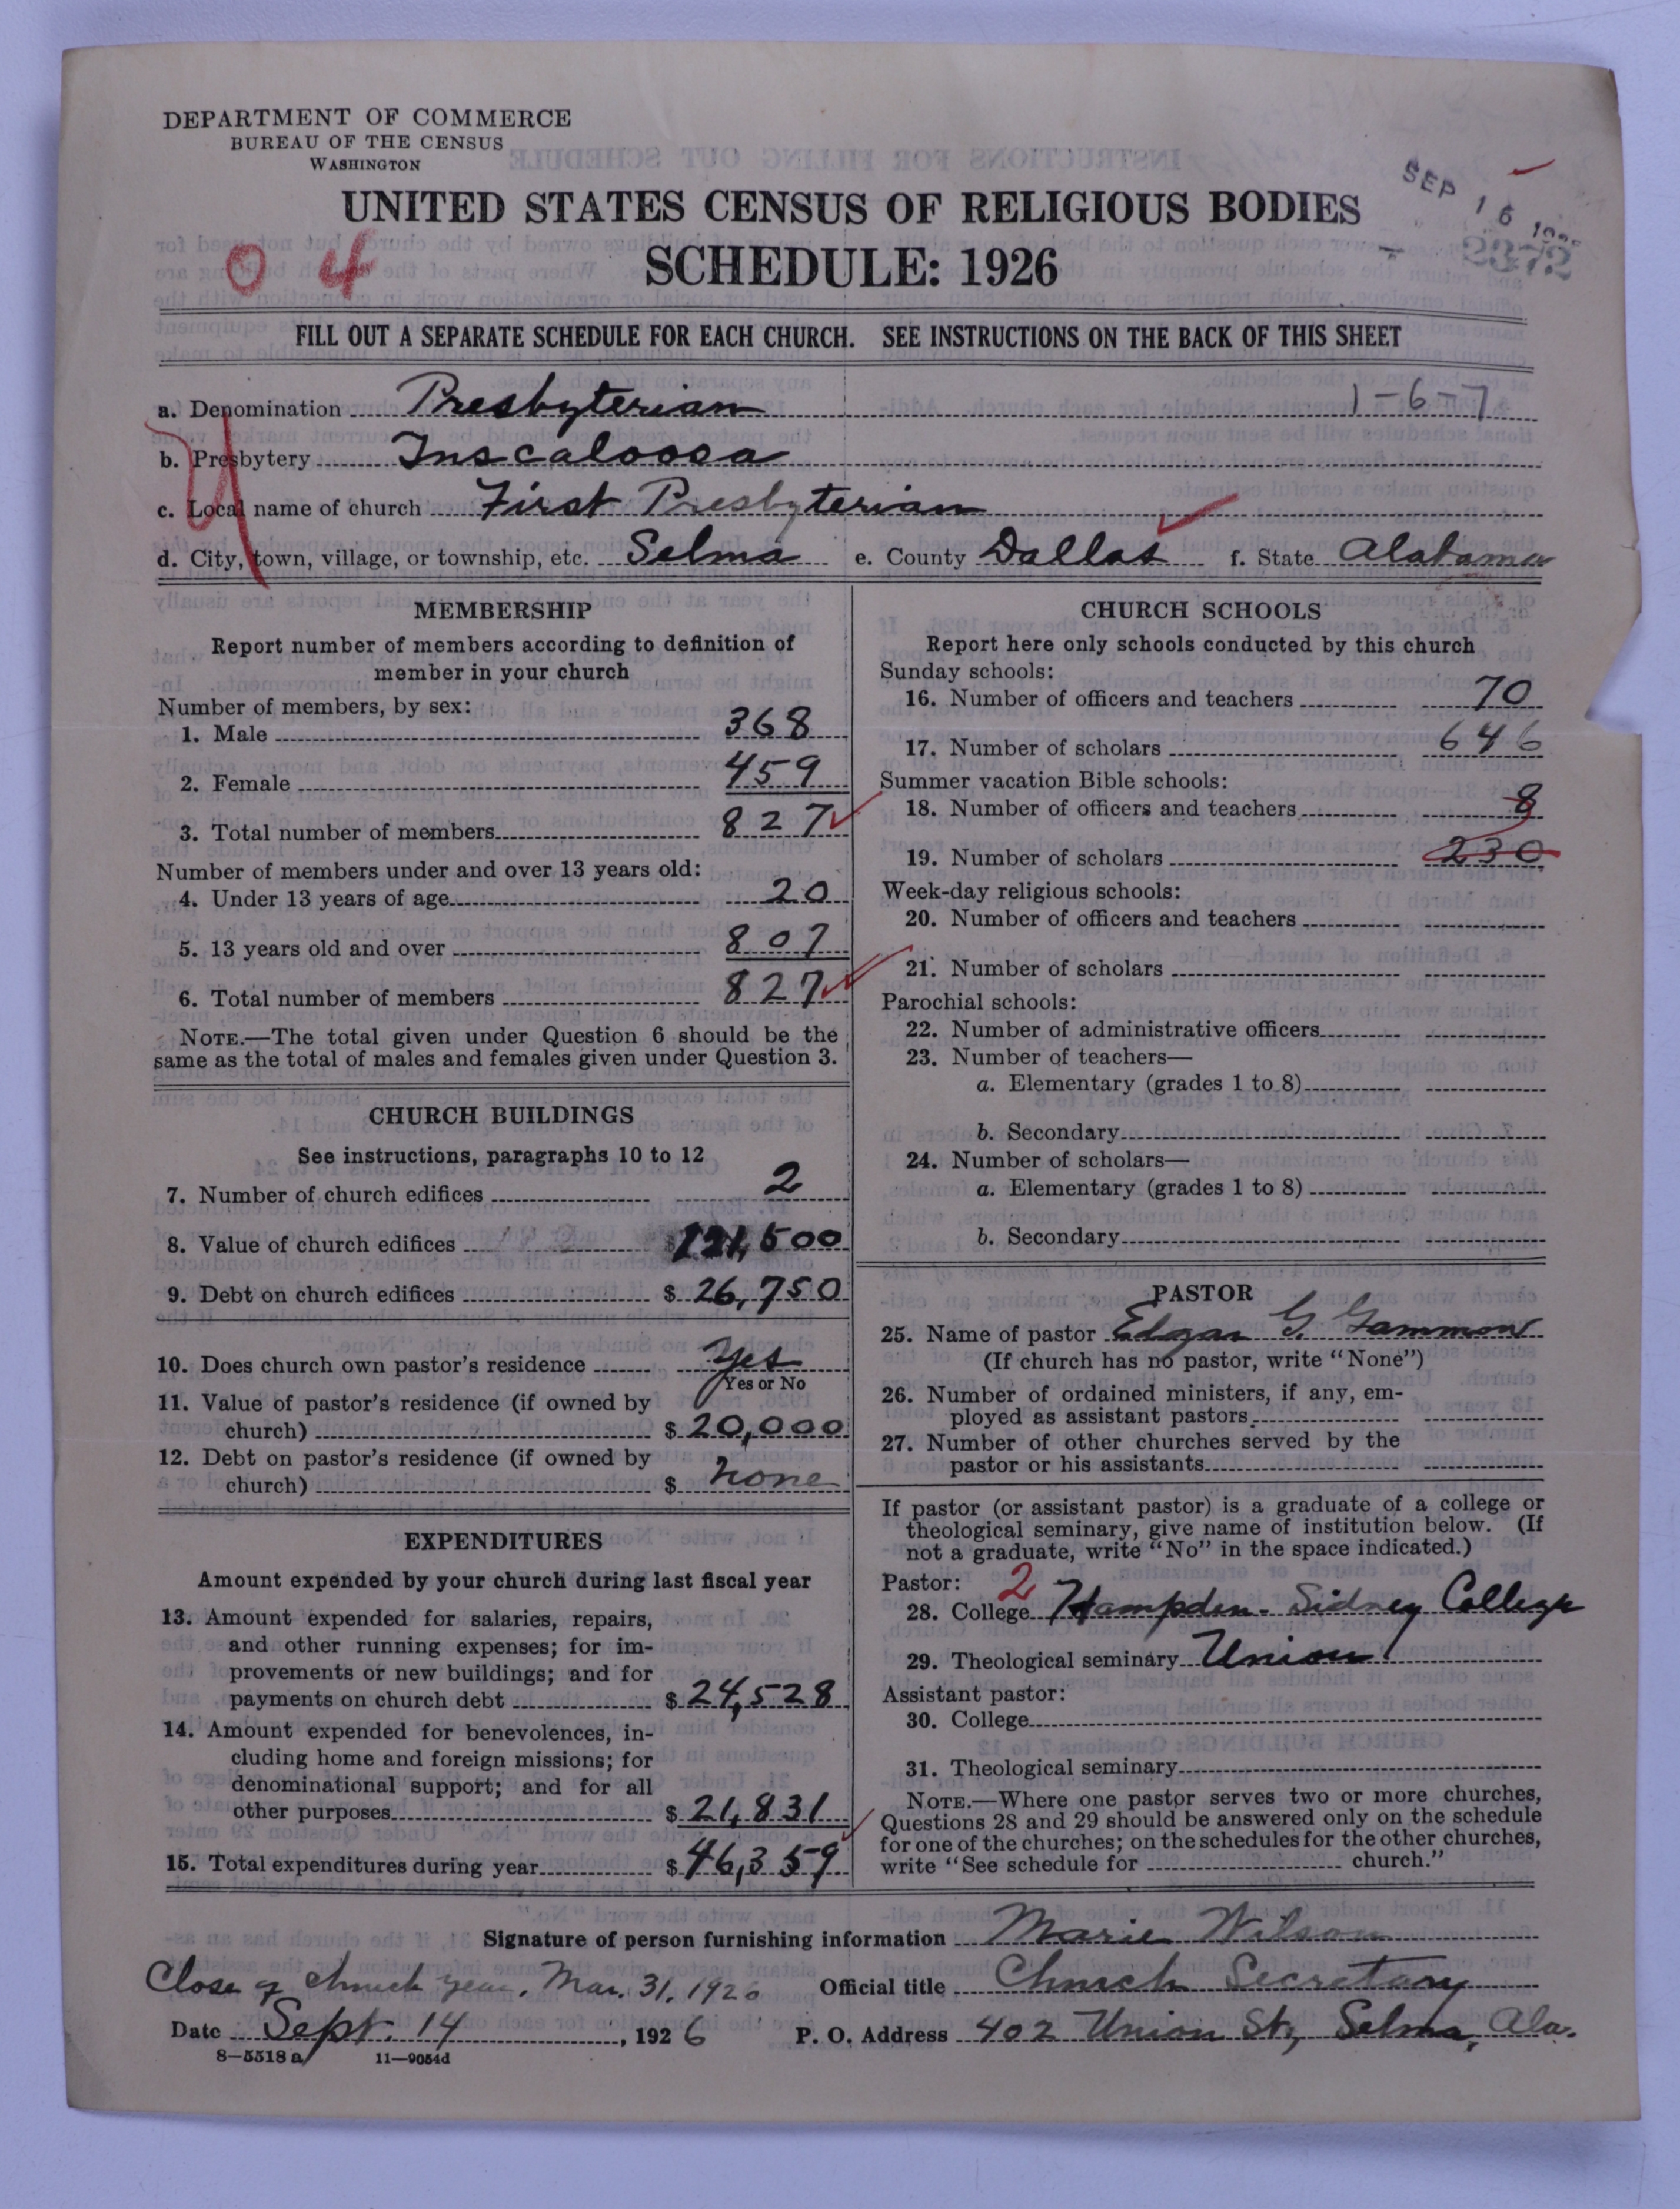 DEPARTMENT OF COMMERCE
BUREAU OF THE CENSUS
WASHINGTON
SEP 16
2372
UNITED STATES CENSUS OF RELIGIOUS BODIES
0 4
SCHEDULE: 1926
FILL OUT A SEPARATE SCHEDULE FOR EACH CHURCH. SEE INSTRUCTIONS ON THE BACK OF THIS SHEET
a. Denomination Presbyterian 1-6-7
b. Presbytery Tuscaloosa
c. Local name of church First Presbyterian
d. City, town, village, or township, etc. Selma e. County Dallas f. State Alabama
MEMBERSHIP
Report number of members according to definition of
member in your church
Number of members, by sex:
1. Male 368
2. Female 459
3. Total number of members 827
Number of members under and over 13 years old:
4. Under 13 years of age 20
5. 13 years old and over 807
6. Total number of members 827
NOTE.—The total given under Question 6 should be the
same as the total of males and females given under Question 3.
CHURCH BUILDINGS
See instructions, paragraphs 10 to 12
7. Number of church edifices 2
8. Value of church edifices 121,500
9. Debt on church edifices $ 26,750
10. Does church own pastor's residence Yes
Yes or No
11. Value of pastor's residence (if owned by
church) $ 20,000
12. Debt on pastor's residence (if owned by
church) $ none
EXPENDITURES
Amount expended by your church during last fiscal year
13. Amount expended for salaries, repairs,
and other running expenses; for im-
provements or new buildings; and for
payments on church debt $ 24,528
14. Amount expended for benevolences, in-
cluding home and foreign missions; for
denominational support; and for all
other purposes $ 21,831
15. Total expenditures during year $ 46,359
CHURCH SCHOOLS
Report here only schools conducted by this church
Sunday schools:
16. Number of officers and teachers 70
17. Number of scholars 646
Summer vacation Bible schools:
18. Number of officers and teachers 8
19. Number of scholars 230
Week-day religious schools:
20. Number of officers and teachers
21. Number of scholars
Parochial schools:
22. Number of administrative officers
23. Number of teachers—
a. Elementary (grades 1 to 8)
b. Secondary
24. Number of scholars—
a. Elementary (grades 1 to 8)
b. Secondary
PASTOR
25. Name of pastor Edgar G. Gammon
(If church has no pastor, write "None")
26. Number of ordained ministers, if any, em-
ployed as assistant pastors
27. Number of other churches served by the
pastor or his assistants
If pastor (or assistant pastor) is a graduate of a college or
theological seminary, give name of institution below. (If
not a graduate, write "No" in the space indicated.)
Pastor: 2
28. College Hampden-Sidney College
29. Theological seminary Union
Assistant pastor:
30. College
31. Theological seminary
NOTE.—Where one pastor serves two or more churches,
Questions 28 and 29 should be answered only on the schedule
for one of the churches; on the schedules for the other churches,
write "See schedule for church."
Signature of person furnishing information Marie Wilson
Close of church year, Mar. 31, 1926 Official title Church Secretary
Date Sept. 14, 1926 P. O. Address 402 Union St, Selma, Ala.
8—5518 a 11—9054d